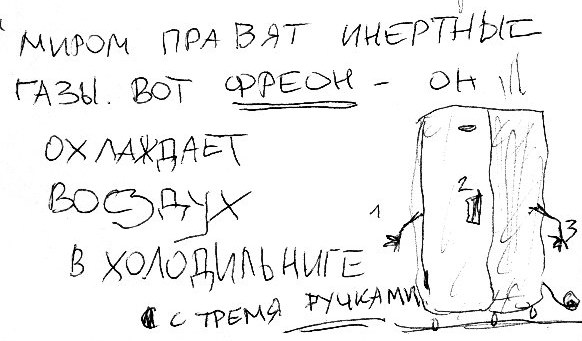 МИРОМ ПРАВЯТ ИНЕРТНЫЕ
ГАЗЫ. ВОТ ФРЕОН – ОН
ОХЛАЖДАЕТ
ВОЗДУХ
В ХОЛОДИЛЬНИГЕ
С ТРЕМЯ РУЧКАМИ
1
2
3